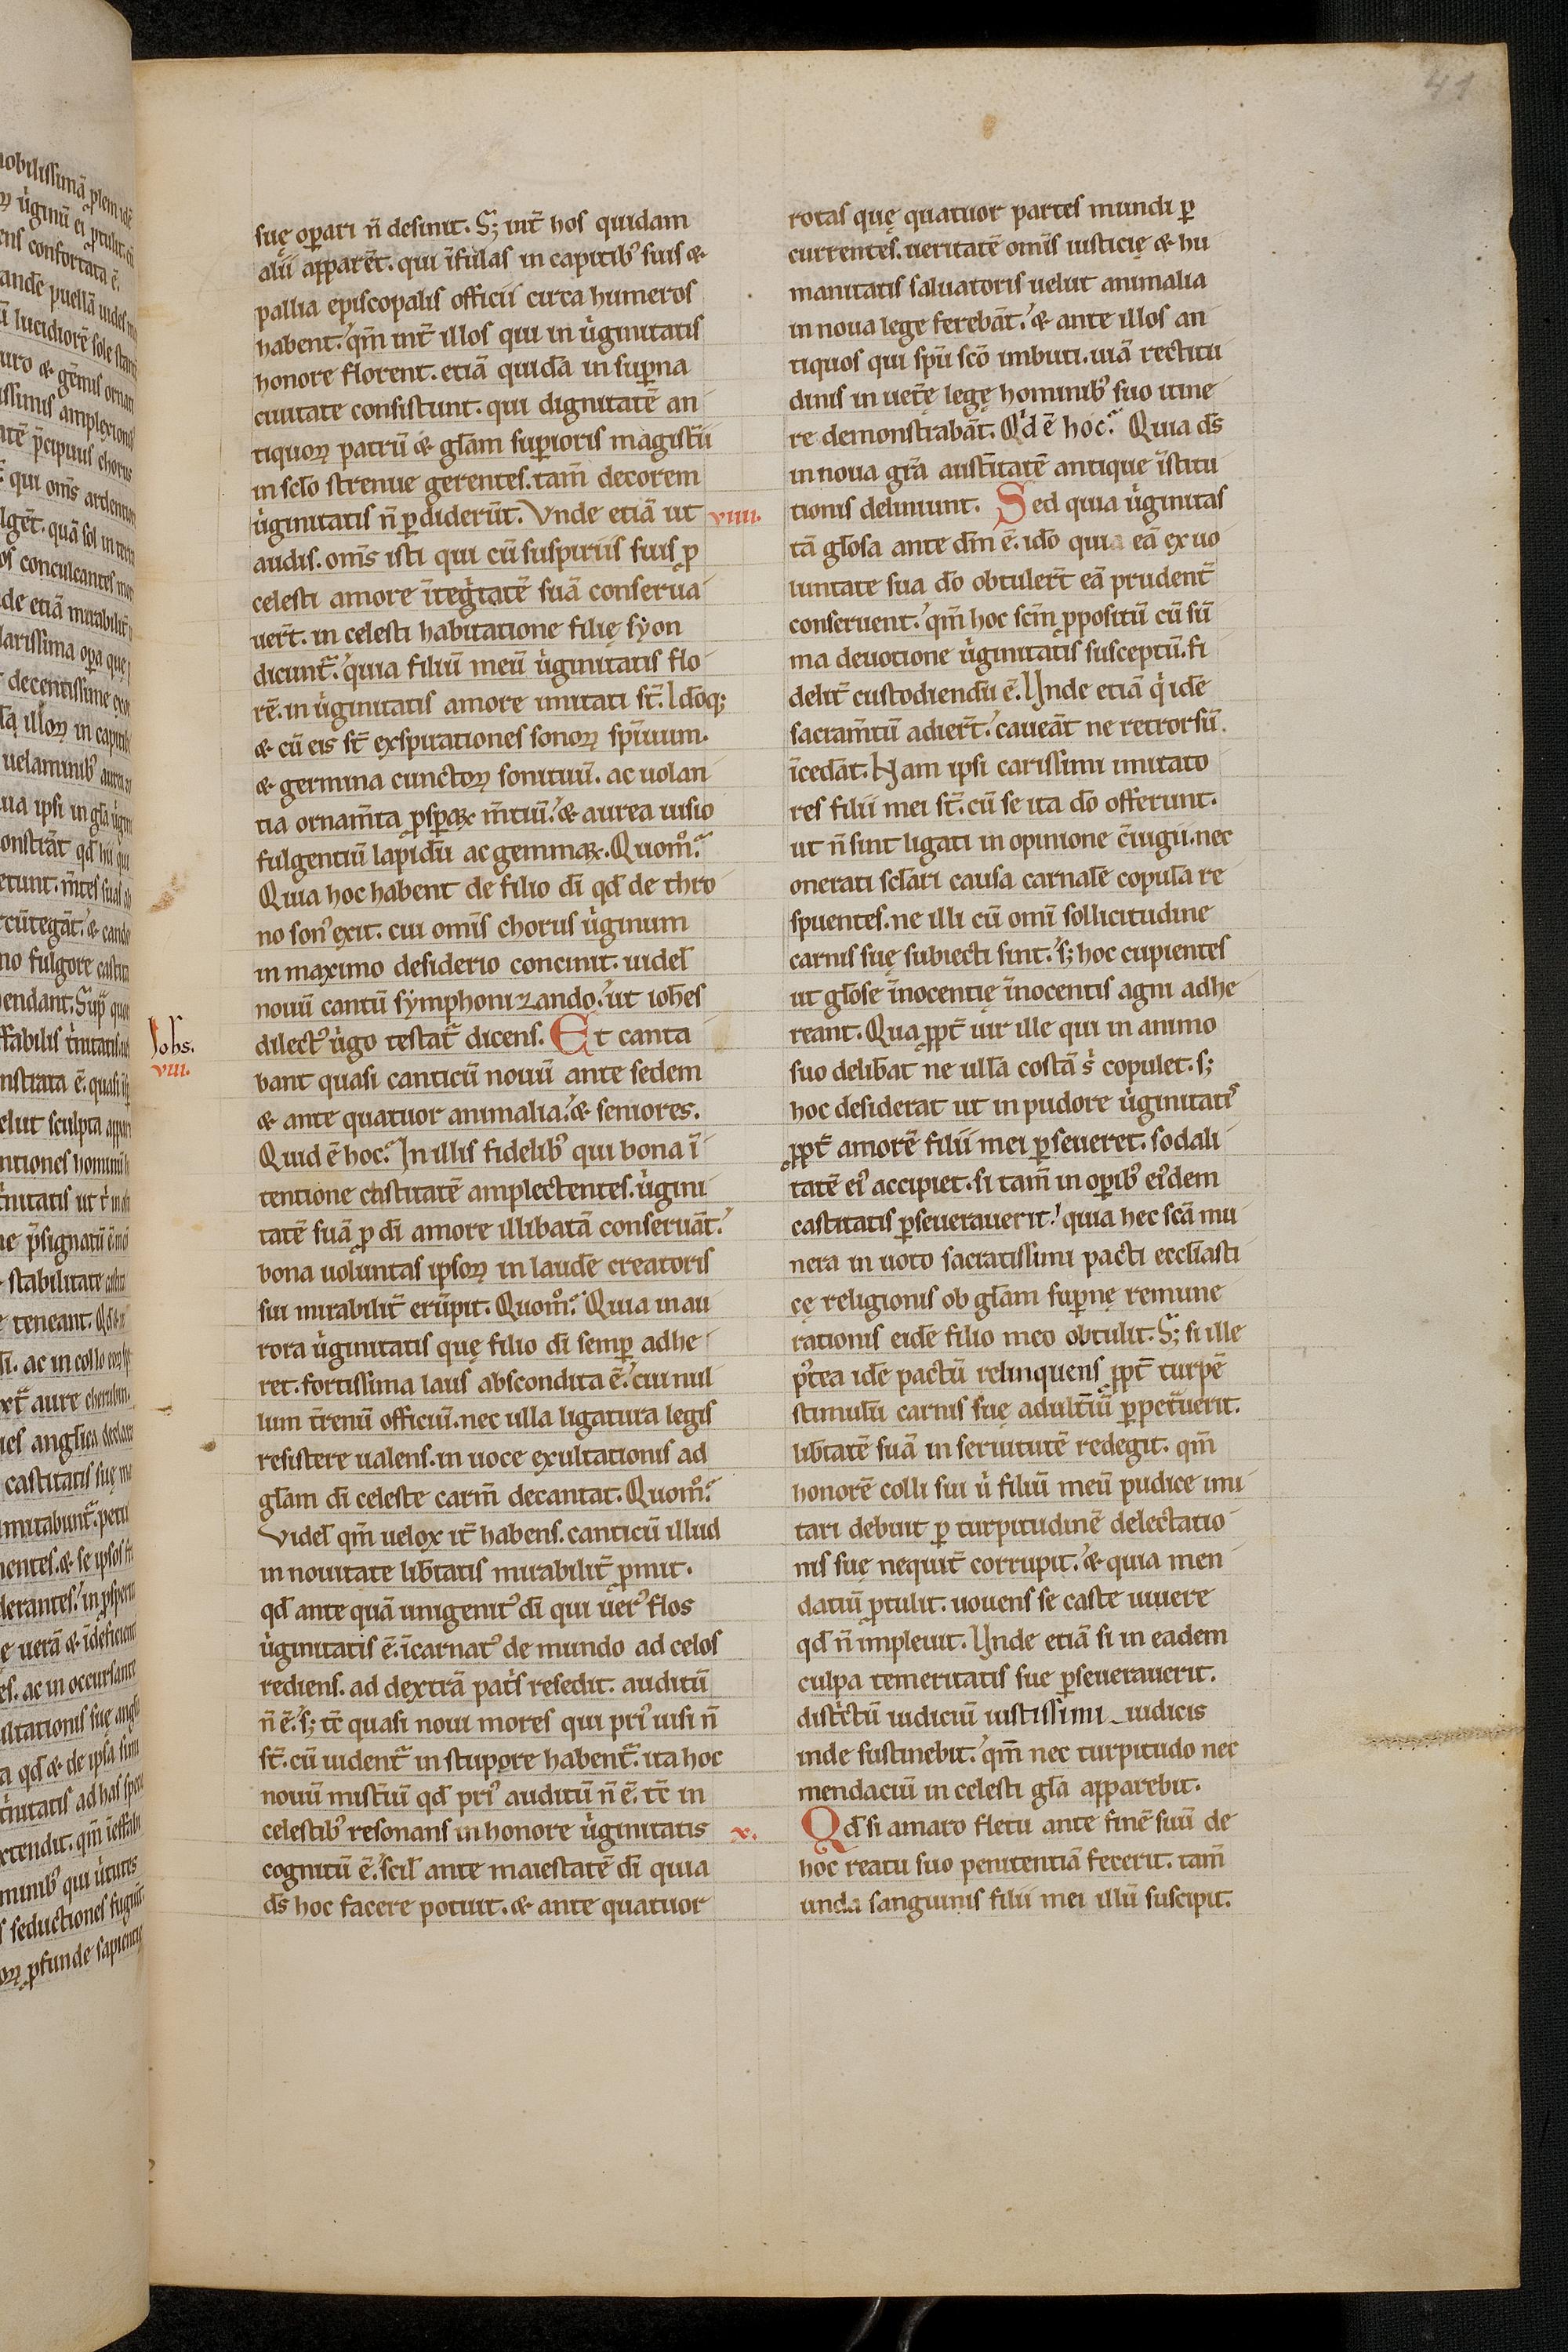 41
suę oꝑari n̄ desinit. S; int̄ hos quidam
alii apparēt. qui īfulas in capitib᷒ suis &
pallia episcopalis officii circa humeros
habent. qm̄ int̄ illos qui in u̇ginitatis
honore florent. etiā quidā in suꝑna
ciuitate consistunt. qui dignitatē an
tiquoꝝ patrū & głam suꝑioris magist̄ii
in scło strenue gerentes. tam̄ decorem
u̇ginitatis n̄ ꝑdiderūt. Vnde etiā ut
viiii.
audis. om̄s isti qui cū suspiriis suis ꝓ
celesti amore īteg̍tatē suā conserua
uer̄t. in celesti habitatione filię syon
dicunt̄. quia filiū meū u̇ginitatis flo
rē. in u̇ginitatis amore imitati st̄. Idoq;
& cū eis st̄ exspirationes sonoꝝ spirituum.
& germina cunctoꝝ sonituū. ac uolan
tia ornam̄ta ꝓsꝑaꝝ m̄tiū. & aurea uisio
fulgentiū lapidū ac gemmaꝝ. Quom̊.
Quia hoc habent de filio dī qd̄ de thro
no son᷒ exit. cui omīs chorus u̇ginum
in maximo desiderio concinit. uideł
nouū cantū symphonizando. ut ioħes
Iohs.
viii.
dilect᷒ u̇go testat̄ dicens. Et canta
bant quasi canticū nouū ante sedem
& ante quatuor animalia. & seniores.
Quid ē hoc. In illis fidelib᷒ qui bona ī
tentione castitatē amplectentes. u̇gini
tatē suā ꝓ dī amore illibatā conseruāt.
bona uoluntas ipsoꝝ in laudē creatoris
sui mirabilit̄ erūpit. Quom̊. Quia in au
rora u̇ginitatis quę filio dī semꝑ adhe
ret. fortissima laus abscondita ē. cui nul
lum t̄renū officiū. nec ulla ligatura legis
resistere ualens. in uoce exultationis ad
głam dī celeste carm̄ decantat. Quom̊.
Videł qm̄ uelox it̄ habens. canticū illud
in nouitate lib̄tatis mirabilit̄ ꝓmit.
qd̄ ante quā unigenit᷒ dī qui uer᷒ flos
u̇ginitatis ē. īcarnat᷒ de mundo ad celos
rediens. ad dextrā pat̍s resedit. auditū
n̄ ē. s; tc̄ quasi noui mores qui pri᷒ uisi n̄
st̄. cū uident̄ in stupore habent̄. ita hoc
nouū mist̄iū qd̄ pri᷒ auditū n̄ ē. tc̄ in
celestib᷒ resonans in honore u̇ginitatis
cognitū ē. scił ante maiestatē dī quia
ds̄ hoc facere potuit. & ante quatuor
rotas quę quatuor partes mundi ꝑ
currentes. ueritatē omīs iusticię & hu
manitatis saluatoris uelut animalia
in noua lege ferebāt. & ante illos an
tiquos qui spū scō imbuti. uiā rectitu
dinis in uet̄ę legę hominib᷒ suo itine
re demonstrabāt. Qd̄ ē hoc. Quia ds̄
in noua gr̄a aust̄itatē antique īstitu
tionis deliniunt. Sed quia u̇ginitas
tā głosa ante dm̄ ē. ido quia eā ex uo
luntate sua dō obtuler̄t eā prudent̄
conseruent. qm̄ hoc scm̄ ꝓpositū cū sū
ma deuotione u̇ginitatis susceptū. fi
delit̄ custodiendū ē. Unde etiā q̍ idē
sacram̄tū adier̄t. caueāt ne retrorsū
īcedāt. Nam ipsi carissimi imitato
res filii mei st̄. cū se ita dō offerunt.
ut n̄ sint ligati in opinione c̄iugii. nec
onerati scłari causa carnalē copulā re
spuentes. ne illi cū omī sollicitudine
carnis suę subiecti sint. s; hoc cupientes
ut głose īnocentię īnocentis agni adhe
reant. Qua ꝓpt̄ uir ille qui in animo
suo delib̄at ne ullā costā s̍ copulet. s;
hoc desiderat ut in pudore u̇ginitatis
ꝓpt̄ amorē filii mei ꝑseueret. sodali
tatē ei᷒ accipiet. si tam̄ in oꝑib᷒ ei᷒dem
castitatis ꝑseuerauerit. quia hec scā mu
nera in uoto sacratissimi pacti eccłiasti
cę religionis ob głam suꝑnę remune
rationis eidē filio meo obtulit. S; si ille
p᷒tea idē pactū relinquens ꝓpt̄ turpē
stimulū carnis suę adult̄iū ꝑpet̄uerit.
lib̄tatē suā in seruitutē redegit. qm̄
honorē colli sui u̍ filiū meū pudice imi
tari debuit ꝑ turpitudinē delectatio
nis suę nequit̄ corrupit. & quia men
datiū ꝓtulit. uouens se caste uiuere
qd̄ n̄ impleuit. Unde etiā si in eadem
culpa temeritatis sue ꝑseuerauerit.
dist̍ctū iudiciū iustissimi iudicis
inde sustinebit. qm̄ nec turpitudo nec
mendaciū in celesti głā apparebit.
x.
Qd̄ si amaro fletu ante finē suū de
hoc reatu suo penitentiā fecerit. tam̄
unda sanguinis filii mei illū suscipit.